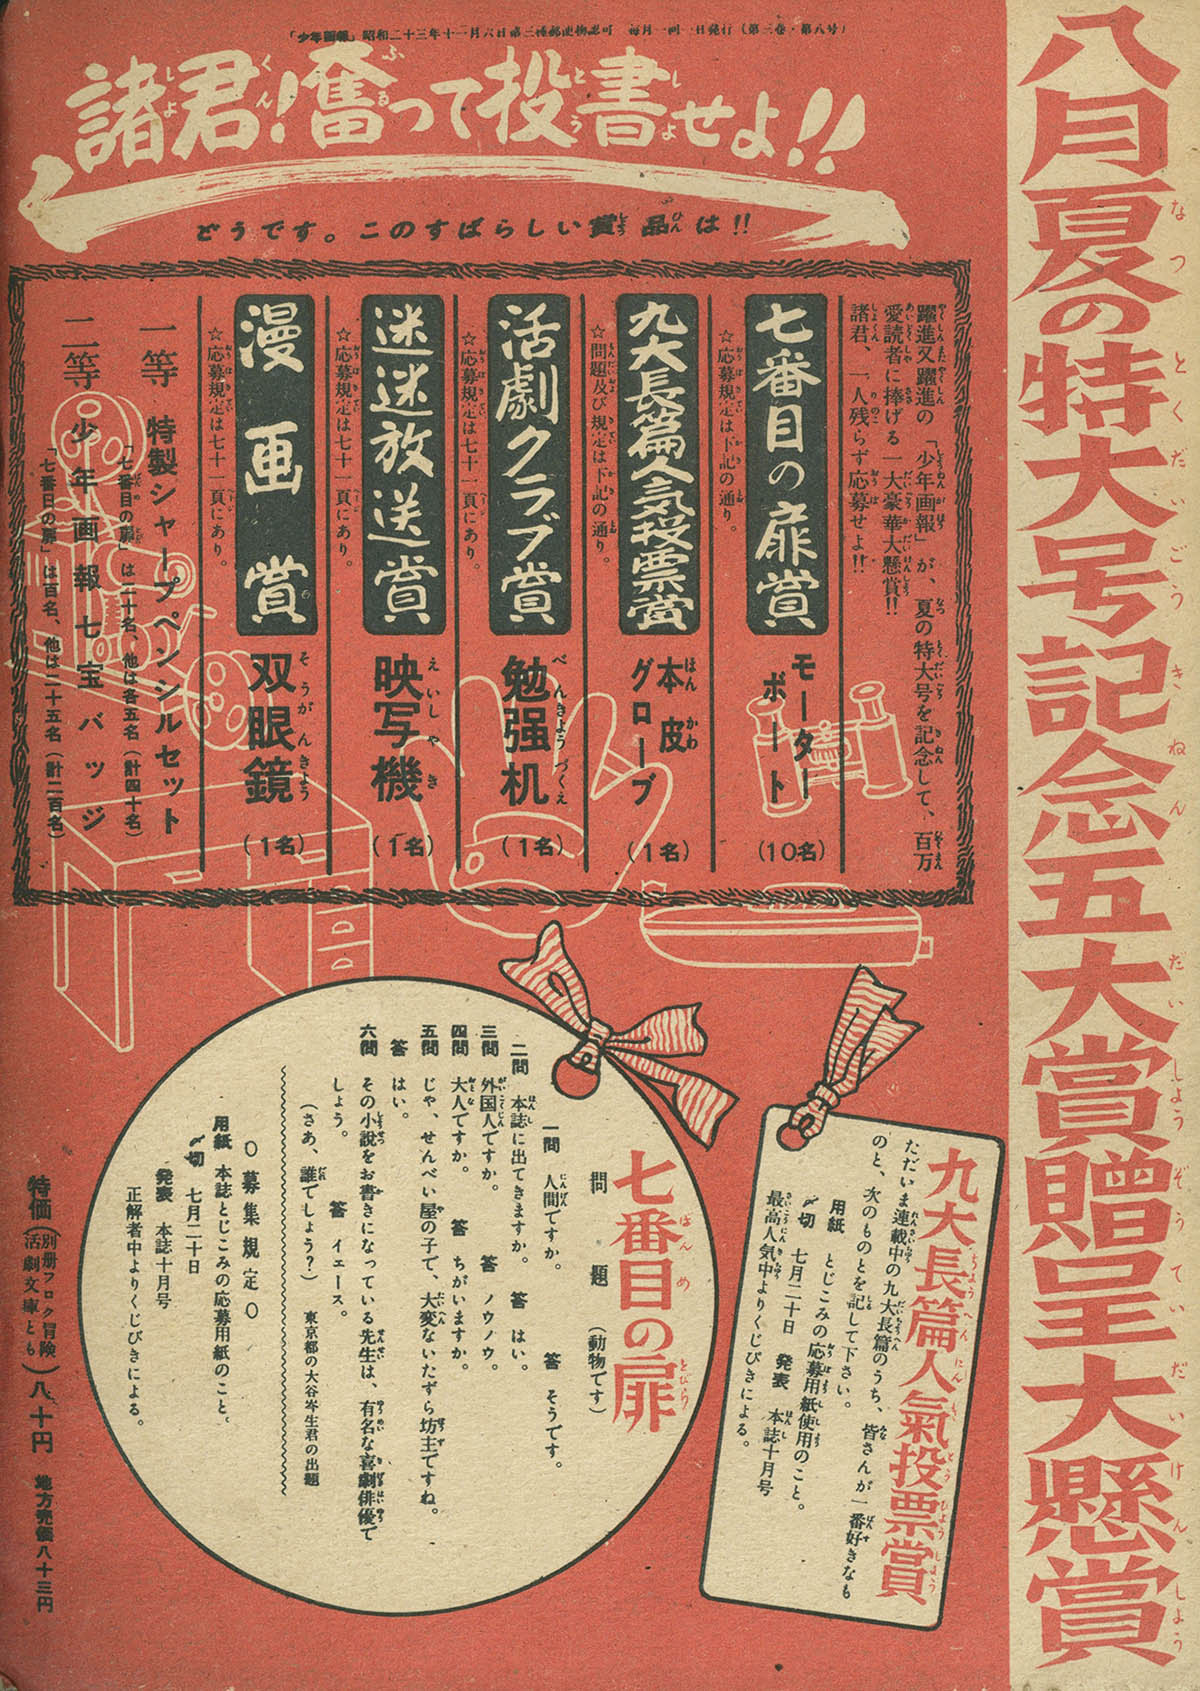 「少年画報」昭和二十三年十一月六日第三種郵便物認可　毎月一回一日発行（第三巻・第八号）
八月夏の特大号記念五大賞贈呈大懸賞
諸君！奮って投書せよ!!
どうです。このすばらしい賞品は!!
躍進又躍進の「少年画報」が、夏の特大号を記念して、百万
愛読者に捧げる一大豪華大懸賞!!
諸君、一人残らず応募せよ!!
七番目の扉賞
☆応募規定は下記の通り。
モーターボート
（10名）
九大長篇人気投票賞
☆問題及び規定は下記の通り。
本皮グローブ
（1名）
活劇クラブ賞
☆応募規定は七十一頁にあり。
勉强机
（1名）
迷迷放送賞
☆応募規定は七十一頁にあり。
映写機
（1名）
漫画賞
☆応募規定は七十一頁にあり。
双眼鏡
（1名）
一等　特製シャープペンシルセット
「七番目の扉」は二十名、他は各五名（計四十名）
二等　少年画報七宝バッジ
「七番目の扉」は百名、他は二十五名（計二百名）
九大長篇人氣投票賞
ただいま連載中の九大長篇のうち、皆さんが一番好きなも
のと、次のものとを記して下さい。
用紙　とじこみの応募用紙使用のこと。
〆切　七月二十日　発表　本誌十月号
最高人気中よりくじびきによる。
七番目の扉
問題（動物です）
一問　人間ですか。　答　そうです。
二問　本誌に出てきますか。　答　はい。
三問　外国人ですか。　答　ノウノウ。
四問　大人ですか。　答　ちがいますか。
五問　じゃ、せんべい屋の子で、大変ないたずら坊主ですね。
答　はい。
六問　その小説をお書きになっている先生は、有名な喜劇俳優で
しょう。　答　イェース。
（さあ、誰でしょう？）　東京都の大谷岑生君の出題
○募集規定○
用紙　本誌とじこみの応募用紙のこと。
〆切　七月二十日
発表　本誌十月号
正解者中よりくじびきによる。
特価（別冊フロク冒険活劇文庫とも）八十円　地方売価八十三円